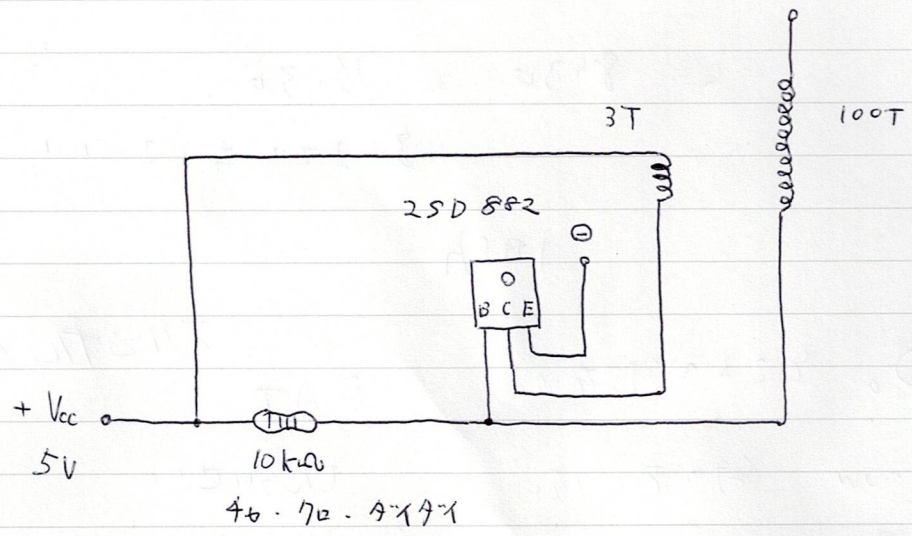 3T
100T
2SD 882
⊖
B C E
+ Vcc
5V
10kΩ
チャ・クロ・ダイダイ